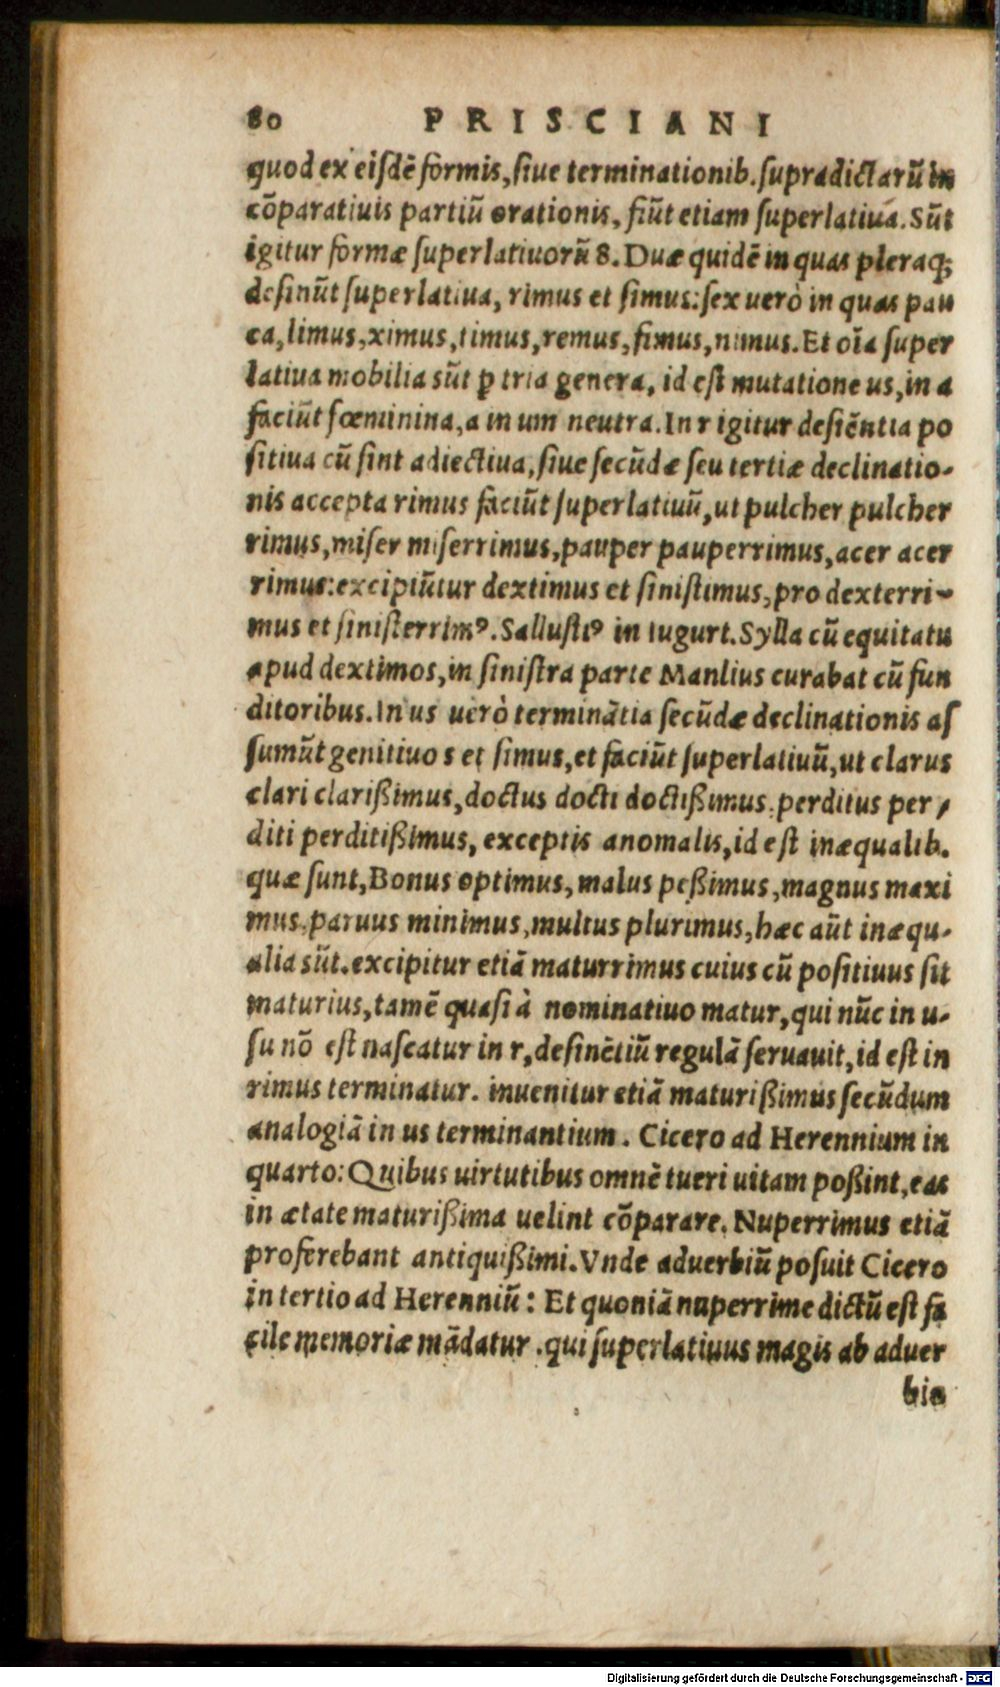 80 PRISCIANI
quod ex eiſdē formis, ſiue terminationib. ſupradictarū in
cōparatiuis partiū orationis, fiūt etiam ſuperlatiua. Sūt
igitur formæ ſuperlatiuorū 8. Duæ quidē in quas pleraq;
deſinūt ſuperlatiua, rimus et ſimus: ſex uerò in quas pau
ca, limus, ximus, timus, remus, fimus, nimus. Et oīa ſuper
latiua mobilia sūt ꝑ tria genera, id eſt mutatione us, in a
faciūt fœminina, a in um neutra. In r igitur deſiēntia po
ſitiua cū ſint adiectiua, ſiue ſecūdæ ſeu tertiæ declinatio-
nis accepta rimus faciūt ſuperlatiuū, ut pulcher pulcher
rimus, miſer miſerrimus, pauper pauperrimus, acer acer
rimus: excipiūtur dextimus et ſiniſtimus, pro dexterri-
mus et ſiniſterrimꝰ. Salluſtiꝰ in Iugurt. Sylla cū equitatu
apud dextimos, in ſiniſtra parte Manlius curabat cū fun
ditoribus. In us uerò terminātia ſecūdæ declinationis aſ
ſumūt genitiuo s et ſimus, et faciūt ſuperlatiuū, ut clarus
clari clarißimus, doctus docti doctißimus, perditus per-
diti perditißimus, exceptis anomalis, id eſt inæqualib.
quæ ſunt, Bonus optimus, malus peßimus, magnus maxi
mus, paruus minimus, multus plurimus, hæc aūt inæqu-
alia sūt. excipitur etiā maturrimus cuius cū poſitiuus ſit
maturius, tamē quaſi à nominatiuo matur, qui nūc in u-
ſu nō eſt naſcatur in r, deſinētiū regulā ſeruauit, id eſt in
rimus terminatur. inuenitur etiā maturißimus ſecūdum
analogiā in us terminantium. Cicero ad Herennium in
quarto: Quibus uirtutibus omnē tueri uitam poßint, eas
in ætate maturißima uelint cōparare. Nuperrimus etiā
proferebant antiquißimi. Vnde aduerbiū poſuit Cicero
in tertio ad Herenniū: Et quoniā nuperrime dictū eſt fa
cile memoriæ mādatur. qui ſuperlatiuus magis ab aduer
bio
Digitalisierung gefördert durch die Deutsche Forschungsgemeinschaft - DFG